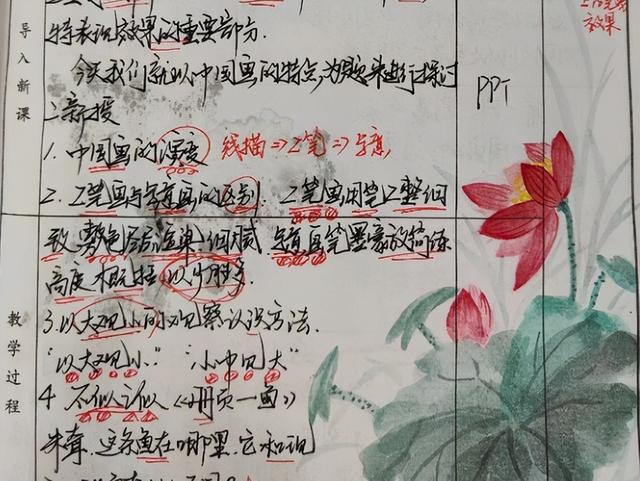 导入新课
特表现效果的重要部分.
今天我们就以中国画的特点,为题来进行探讨
PPT
效果
二.新授
1. 中国画的演变 线描⇒工笔⇒写意
2. 工笔画与写意画的区别. 工笔画用笔工整细
致 敷色层层渲染 细腻 写意画笔墨豪放简练
高度 概括 以少胜多.
3. 以大观小的观察认识方法.
"以大观小" "小中见大"
教学过程
4 不似之似 《册页一鱼》
朱耷. 这条鱼在哪里. 它和现